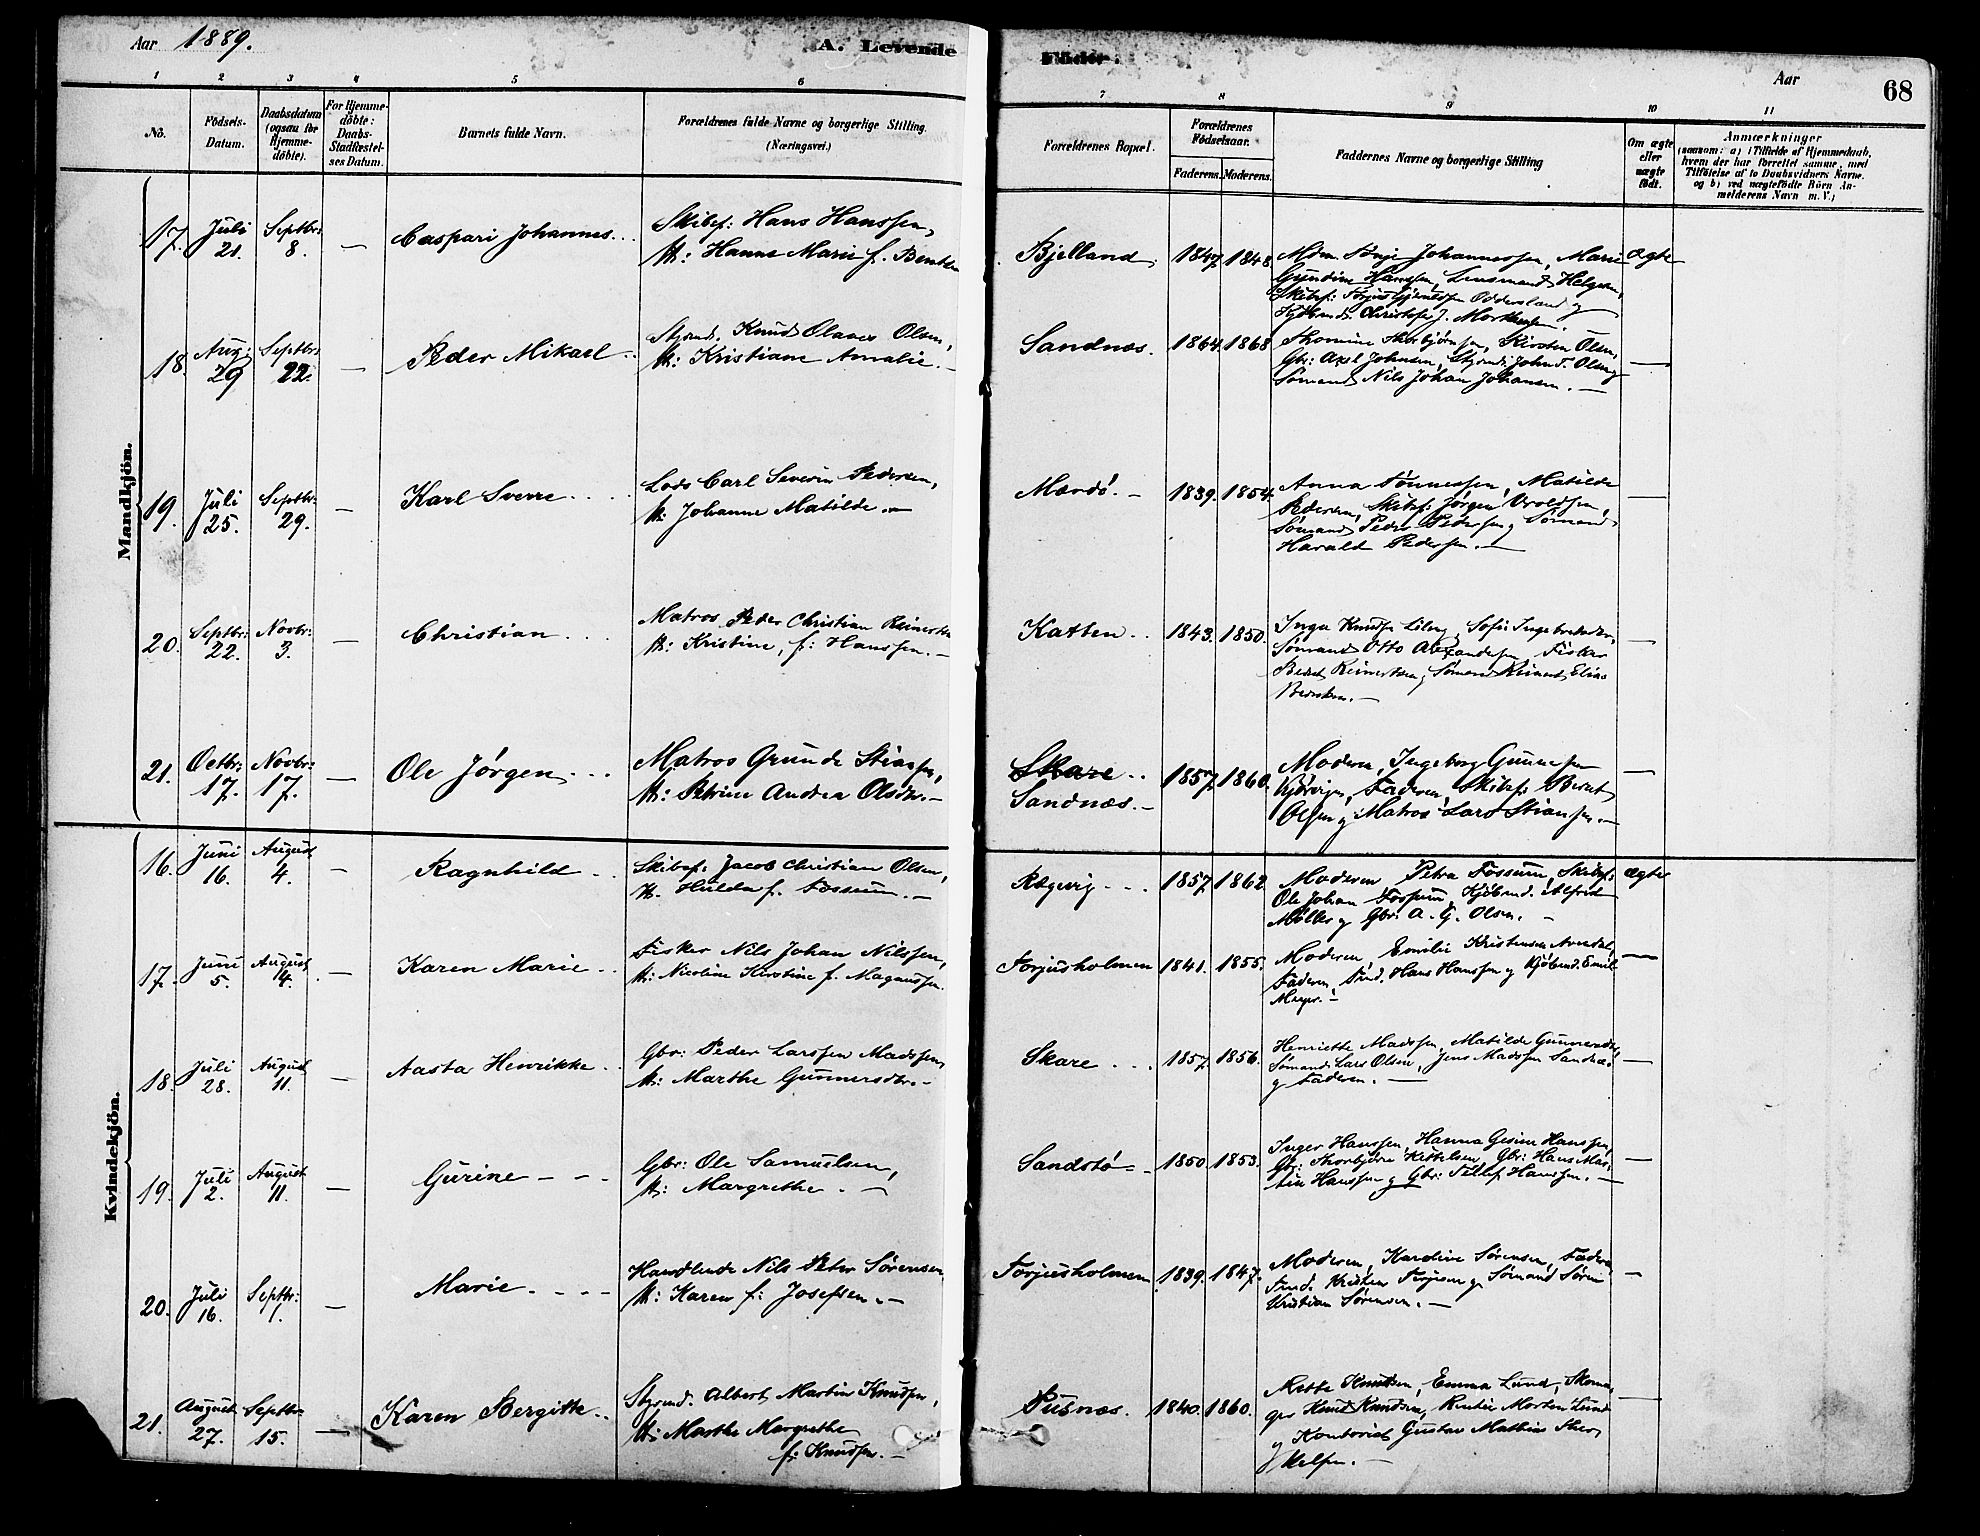 Aar 1889.
A. Levende
Födte.
Aar
68
1 2 3 4 5 6 7 8 9 10 11
No.
Födsels-Datum.
Daabsdatum (ogsaa for Hjemmedöbte).
For Hjemmedöbte: Daabs-Stadfæstelses Datum.
Barnets fulde Navn.
Forældrenes fulde Navne og borgerlige Stilling.
(Næringsvei.)
Forældrenes Bopæl.
Forældrenes Födselsaar.
Faderens. Moderens.
Faddernes Navne og borgerlige Stilling
Om ægte eller uægte födt.
Anmærkninger
(saasom: a) i Tilfælde af Hjemmedaab,
hvem der har forrettet samme, med
Tilföielse af to Daabsvidners Navne.
og b) ved uægtefödte Börn An-
melderens Navn m. V.)
Mandkjön.
17. Juli 21. Septbr: 8. — Caspari Johannes
Skibsf: Hans Hanssen,
H: Hanne Marie f. Bentsen
Bjelland. 1847 1848.
Mdm. Tönje Johannessen, Marie
Gundine Hanssen, Lensmand Helgesen,
Christoffer J. Mortensen.
Ægte
18. Aug: 29 Septbr: 22. — Peder Mikael
Styrmd. Knud Olaves Olsen,
H: Kristiane Amalie. —
Sandnæs. 1864. 1868
Thomine Thorbjörnsen, Kirsten Olsen,
Gbr: Axel Johnsen, Styrmd: John T. Olsen og
Sömand Nils Johan Johansen. —
—
19. Juli 25. Septbr: 29. — Karl Sverre
Lods Carl Severin Pedersen,
H: Johanne Matilde. —
Mærdö. — 1839. 1854.
Anna Tönnessen, Matilde
Pedersen, Skibsf: Jörgen Vroldsen,
Sömand Peder Pedersen og Sömand
Harald Pedersen. —
—
20. Septbr: 22. Novbr: 3. — Christian
Matros Peder Christian Reinertsen
H: Kristine, f: Hanssen. —
Katten 1843. 1850.
Sömand Otto Alexandersen Fisker
Reinertsen, Sömand Reinert Elias
—
21. Octbr: 17. Novbr: 17. — Ole Jörgen
Matros Grunde Stiansen,
H: Petrine Andrea Olsdtr. —
Skare
Sandnæs. — 1857. 1860.
Moderen, Ingeborg Gunnesen
Faderen, Skibsf: Bernt
Olsen og Matros Lars Stiansen. —
—
Kvindekjön.
16. Juni 16. August 4. — Ragnhild
Skibsf: Jacob Christian Olsen,
H. Hulda f. Fossum. —
Rægevig 1857. 1862
Moderen Petra Fossum, Skibsf:
Ole Johan Fossum, Kjöbmd. Alfred
Möller og Gbr: A. G. Olsen. —
Ægte
17. Juni 5. August 14. — Karen Marie
Fisker Nils Johan Nilssen,
H: Nicoline Kirstine f. Magnussen.
Torjusholmen 1841. 1855.
Moderen, Emilie Kristensen Arendal,
Faderen, Hans Hanssen og Kjöbmd. Emil
Meyer. —
—
18. Juli 28. August 11. — Aasta Henrikke
Gbr: Peder Larssen Madssen,
H: Marthe Gunnersdtr. —
Skare 1857. 1856.
Henriette Madssen, Matilde Gunnersdtr,
Sömand Lars Olsen, Jens Madssen Sandnæs
og Faderen. —
—
19. Juli 2. August 11. — Gurine
Gbr: Ole Samuelsen,
H: Margrethe. —
Sandstö 1850. 1853.
Inger Hanssen, Hanna Gesine Hanssen,
Gbr: Thorbjörn Kittelsen, Gbr: Hans Mar-
tin Hanssen og Gbr: Tellef Hanssen. —
—
20. Juli 16. Septbr: 1. — Marie
Handlende Nils Peter Sörensen
H: Karen f: Josefsen. —
Torjusholmen 1839. 1847.
Moderen, Karoline Sörensen, Faderen
Kristen Terjesen og Sömand Sören
Kristian Sörensen. —
—
21. August 27. Septbr: 15. — Karen Bergitte
Styrmd. Albert Martin Knudsen,
H: Marthe Margrethe
f: Knudsen. —
Pusnæs. 1840. 1860.
Mette Knudsen, Emma Lund, Skoma-
ger Knud Knudsen, Rentier Morten Lund
og Kontorist Gustav Mathias
—